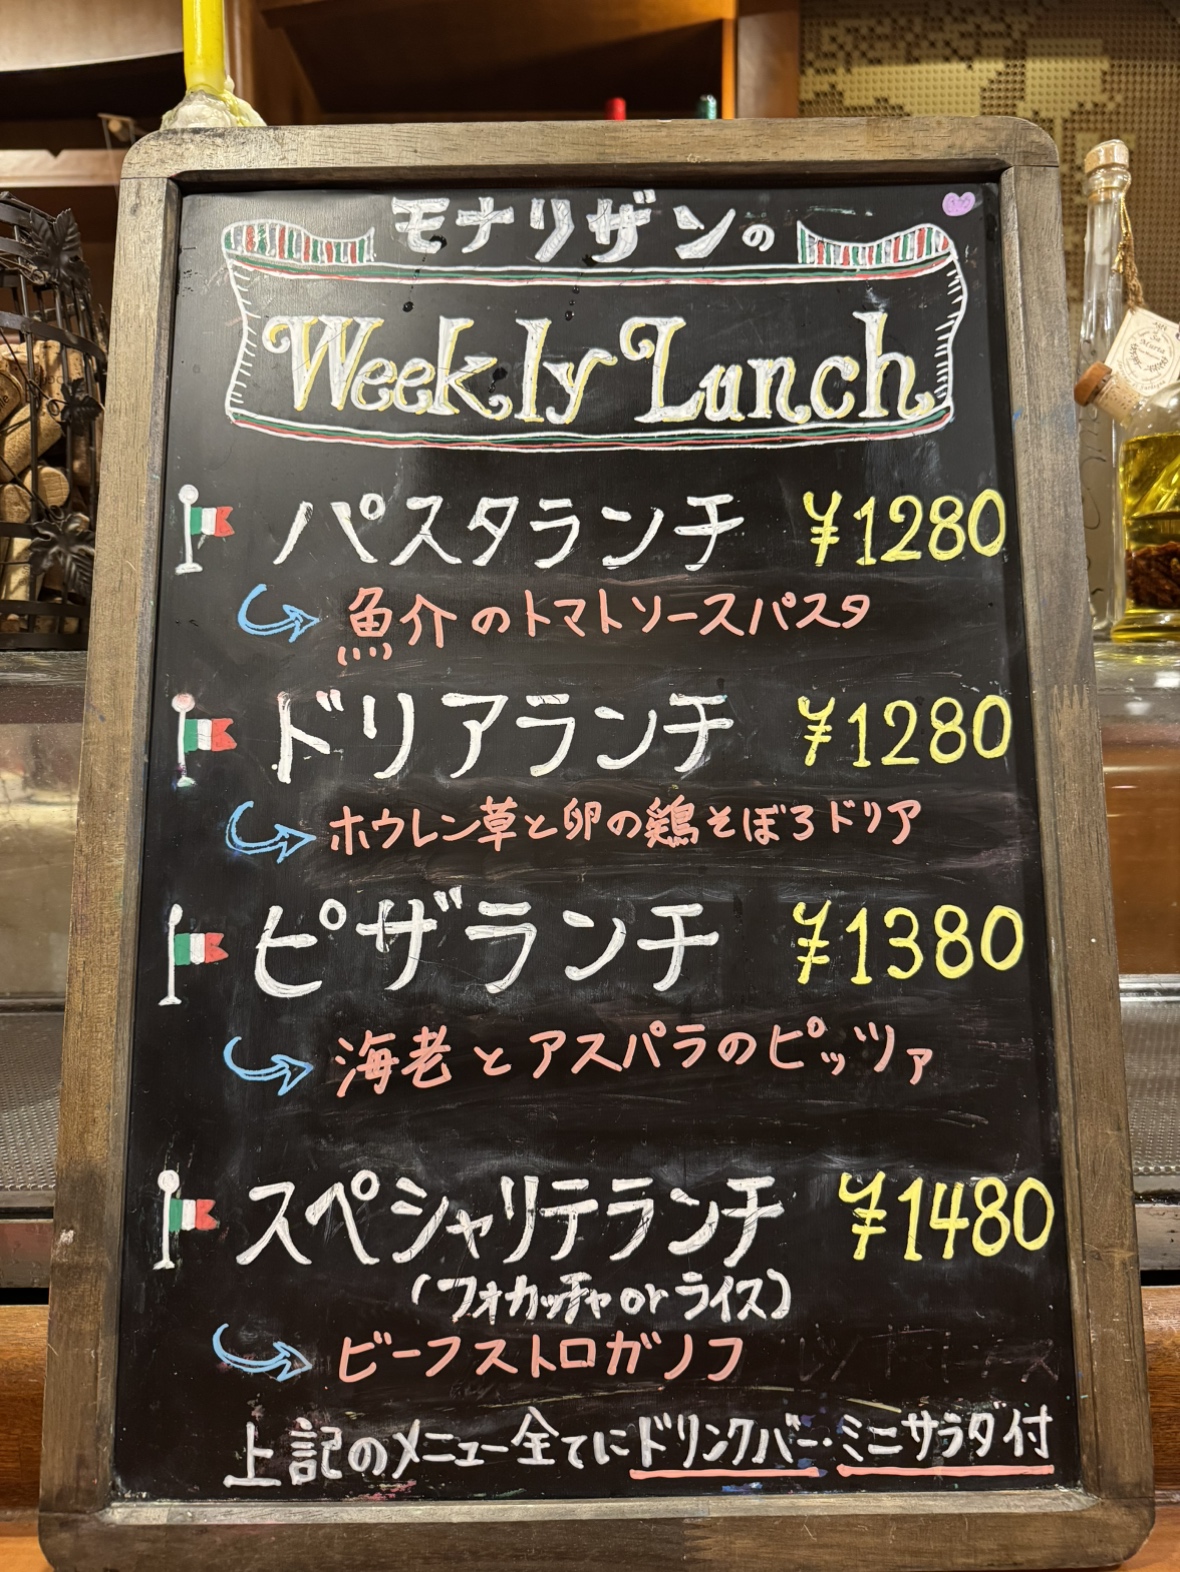 モナリザンの
Weekly Lunch
パスタランチ ¥1280
魚介のトマトソースパスタ
ドリアランチ ¥1280
ホウレン草と卵の鶏そぼろドリア
ピザランチ ¥1380
海老とアスパラのピッツァ
スペシャリテランチ ¥1480
(フォカッチャorライス)
ビーフストロガノフ
上記のメニュー全てにドリンクバー・ミニサラダ付